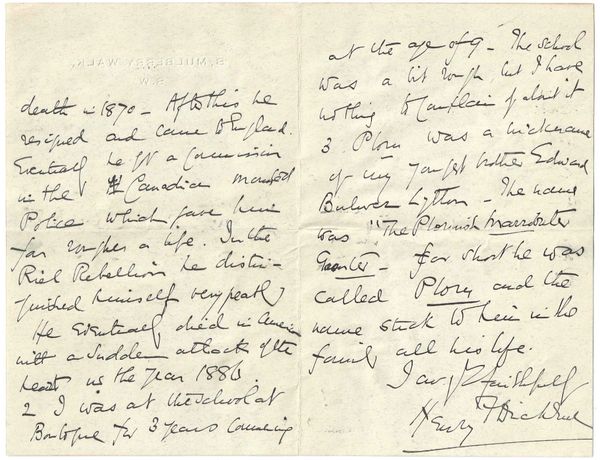 death in 1870 - After this he
resigned and came to England.
Eventually he got a Commission
in the Canadian mounted
Police which gave him
far rougher a life. In the
Riel Rebellion he distin-
guished himself very greatly
He Eventually died in America
with a sudden attack of the
heart in the year 1886
2 I was at the School at
Boulogne for 3 years Commencing
at the age of 9 - The school
was a bit rough but I have
nothing to Complain of about it
3 Plorn was a nickname
of my youngest brother Edward
Bulwer Lytton - The name
was "The Plornish
- for short he was
called Plorn and the
name stuck to him in the
family all his life.
I am faithfully
Henry F Dickens
5, MULBERRY WALK,
S.W.